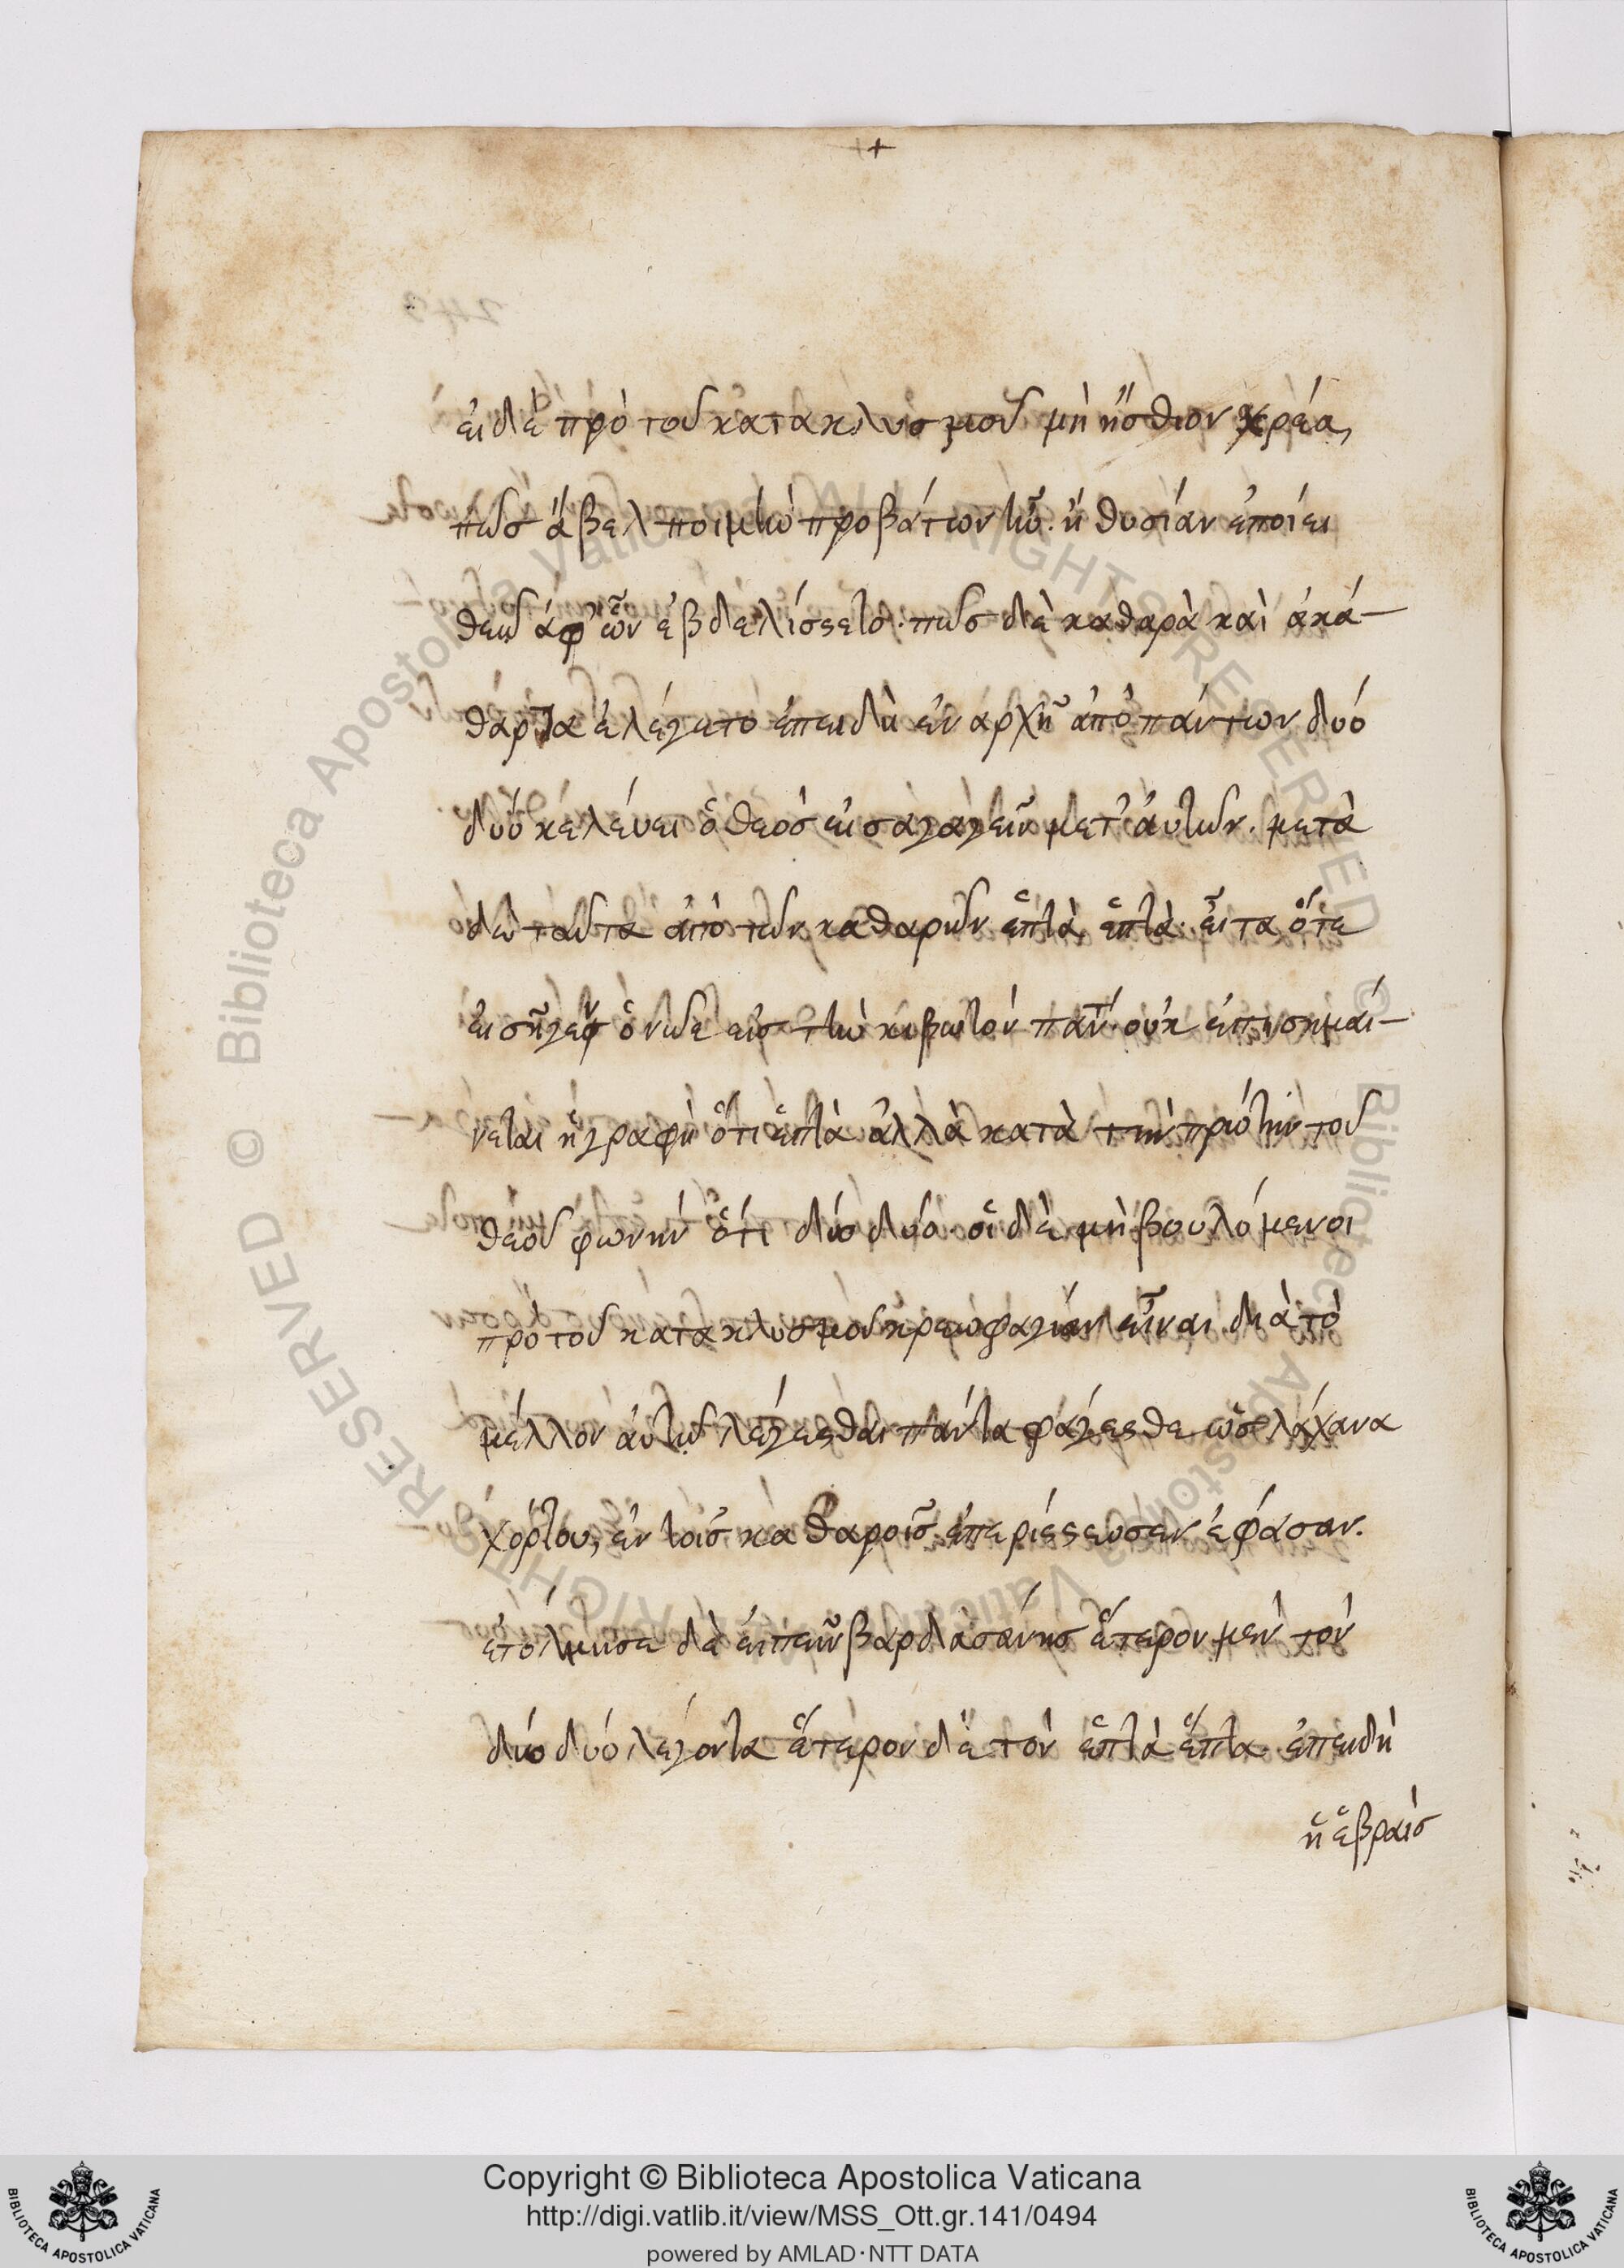 +
εἰ δὲ πρὸ τοῦ κατακλυσμοῦ μὴ ἤσθιον κρέα,
πῶσ ἄβελ ποιμὴν προβάτων ἦν. ἢ θυσίαν ἐποίει
θεῷ ἀφ' ὧν ἐβδελίσςετο. πῶσ δὲ καθαρὰ καὶ ἀκά-
θαρτα ἐλέγετο ἐπειδὴ ἐν ἀρχῇ ἀπὸ πάντων δυό
δυό κελέυει ὁ θεόσ εἰσαγαγεῖν μετ' ἀυτῶν. μετὰ
δὲ ταῦτα ἀπὸ τῶν καθαρῶν ἑπτὰ ἑπτὰ. εἶτα ὅτε
εἰσῆγεν ὁ νῶε εἰσ τὴν κιβωτόν πάντα. οὐκ ἐπισημαί-
νεται ἡ γραφὴ ὅτι ἑπτὰ ἀλλὰ κατὰ τὴν πρώτην τοῦ
θεοῦ φωνήν ὅτι δύο δυό. οἱ δὲ μὴ βουλόμενοι
πρὸ τοῦ κατακλυσμοῦ κρεωφαγίαν εἶναι διὰ τὸ
μέλλον ἀυτῷ λέγεςθαι πάντα φάγεςθε ὡσ λάχανα
χόρτου, ἐν τοῖσ καθαροῖσ ἐπερίεςευσεν ἐφάσαν.
ἐτόλμησε δὲ ἐιπεῖν βαρδασάνησ ἕτερον μὲν τὸν
δύο δυό λέγοντα ἕτερον δὲ τὸν ἑπτὰ ἕπτα. ἐπειδὴ
ἡ ἑβραὶσ
Copyright © Biblioteca Apostolica Vaticana
http://digi.vatlib.it/view/MSS_Ott.gr.141/0494
powered by AMLAD·NTT DATA
BIBLIOTECA APOSTOLICA VATICANA
BIBLIOTECA APOSTOLICA VATICANA